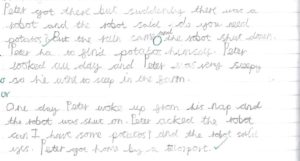 Peter got there but suddenly there was a
robot and the robot said, do you need
potatos? But the rain came and the robot shut down.
Peter has to find potato himself. Peter
looked all day and Peter was very sleepy
so he whent to sleep in the farm.
or
One day Peter woke up from his nap and
the robot was shut on. Peter acked the robot
can I have some potatos and the robot said
yes. Peter got home by a